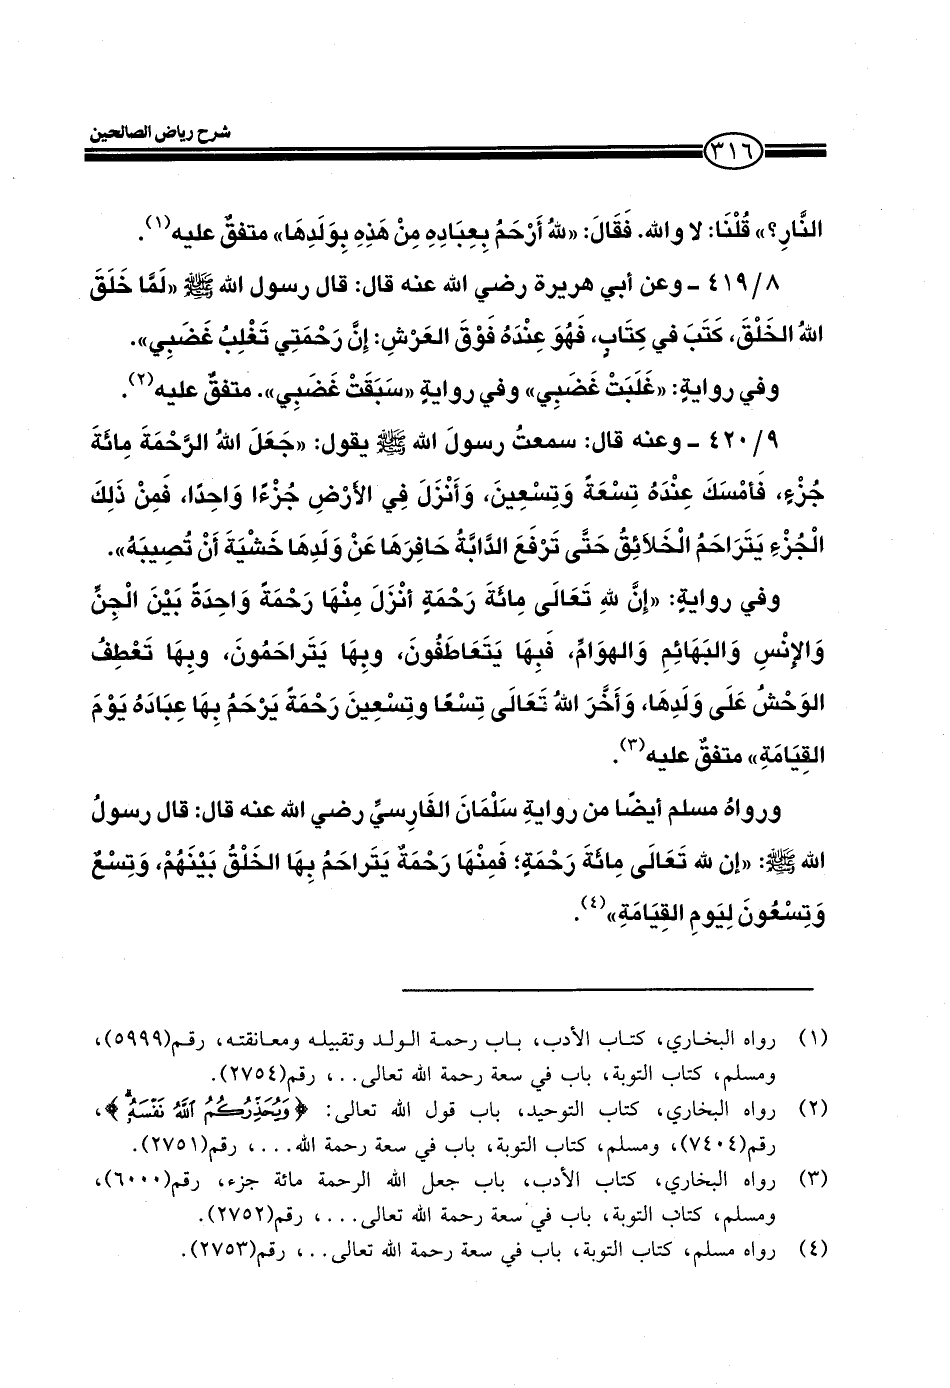 شرح رياض الصالحين
٣١٦
النَّارِ؟» قُلْنَا: لا والله. فَقَالَ: «للهُ أَرْحَمُ بِعِبَادِهِ مِنْ هَذِهِ بِوَلَدِهَا» متفقٌ عليه(١).
٤١٩/٨ - وعن أبي هريرة رضي الله عنه قال: قال رسول الله ﷺ «لَمَّا خَلَقَ
اللهُ الخَلْقَ، كَتَبَ في كِتَابٍ، فَهُوَ عِنْدَهُ فَوْقَ العَرْشِ: إنَّ رَحْمَتِي تَغْلِبُ غَضَبِي».
وفي روايةٍ: «غَلَبَتْ غَضَبِي» وفي روايةٍ «سَبَقَتْ غَضَبِي». متفقٌ عليه(٢).
٤٢٠/٩ - وعنه قال: سمعتُ رسولَ الله ﷺ يقول: «جَعَلَ اللهُ الرَّحْمَةَ مِائَةَ
جُزْءٍ، فَأمْسَكَ عِنْدَهُ تِسْعَةً وَتِسْعِينَ، وَأَنْزَلَ فِي الأرْضِ جُزْءًا وَاحِدًا، فَمِنْ ذَلِكَ
الْجُزْءِ يَتَرَاحَمُ الْخَلاَئِقُ حَتَّى تَرْفَعَ الدَّابَّةُ حَافِرَهَا عَنْ وَلَدِهَا خَشْيَةَ أَنْ تُصِيبَهُ».
وفي روايةٍ: «إنَّ للهِ تَعَالَى مِائَةَ رَحْمَةٍ أنْزَلَ مِنْهَا رَحْمَةً وَاحِدَةً بَيْنَ الْجِنِّ
وَالإنْسِ وَالبَهَائِمِ وَالهوَامِّ، فَبِهَا يَتَعَاطَفُونَ، وبِهَا يَتَرَاحَمُونَ، وبِهَا تَعْطِفُ
الوَحْشُ عَلَى وَلَدِهَا، وَأَخَّرَ اللهُ تَعَالَى تِسْعًا وتِسْعِينَ رَحْمَةً يَرْحَمُ بِهَا عِبَادَهُ يَوْمَ
القِيَامَةِ» متفقٌ عليه(٣).
ورواهُ مسلم أيضًا من روايةِ سَلْمَانَ الفَارِسيِّ رضي الله عنه قال: قال رسولُ
الله ﷺ: «إن لله تَعَالَى مِائَةَ رَحْمَةٍ؛ فَمِنْهَا رَحْمَةٌ يَتَراحَمُ بِهَا الخَلْقُ بَيْنَهُمْ، وَتِسْعٌ
وَتِسْعُونَ لِيَومِ القِيَامَةِ»(٤).
(١) رواه البخاري، كتاب الأدب، باب رحمة الولد وتقبيله ومعانقته، رقم(٥٩٩٩)،
ومسلم، كتاب التوبة، باب في سعة رحمة الله تعالى...، رقم(٢٧٥٤).
(٢) رواه البخاري، كتاب التوحيد، باب قول الله تعالى: ﴿وَيُحَذِّرُكُمُ ٱللَّهُ نَفْسَهُۥ﴾،
رقم(٧٤٠٤)، ومسلم، كتاب التوبة، باب في سعة رحمة الله...، رقم(٢٧٥١).
(٣) رواه البخاري، كتاب الأدب، باب جعل الله الرحمة مائة جزء، رقم(٦٠٠٠)،
ومسلم، كتاب التوبة، باب في سعة رحمة الله تعالى...، رقم(٢٧٥٢).
(٤) رواه مسلم، كتاب التوبة، باب في سعة رحمة الله تعالى...، رقم(٢٧٥٣).